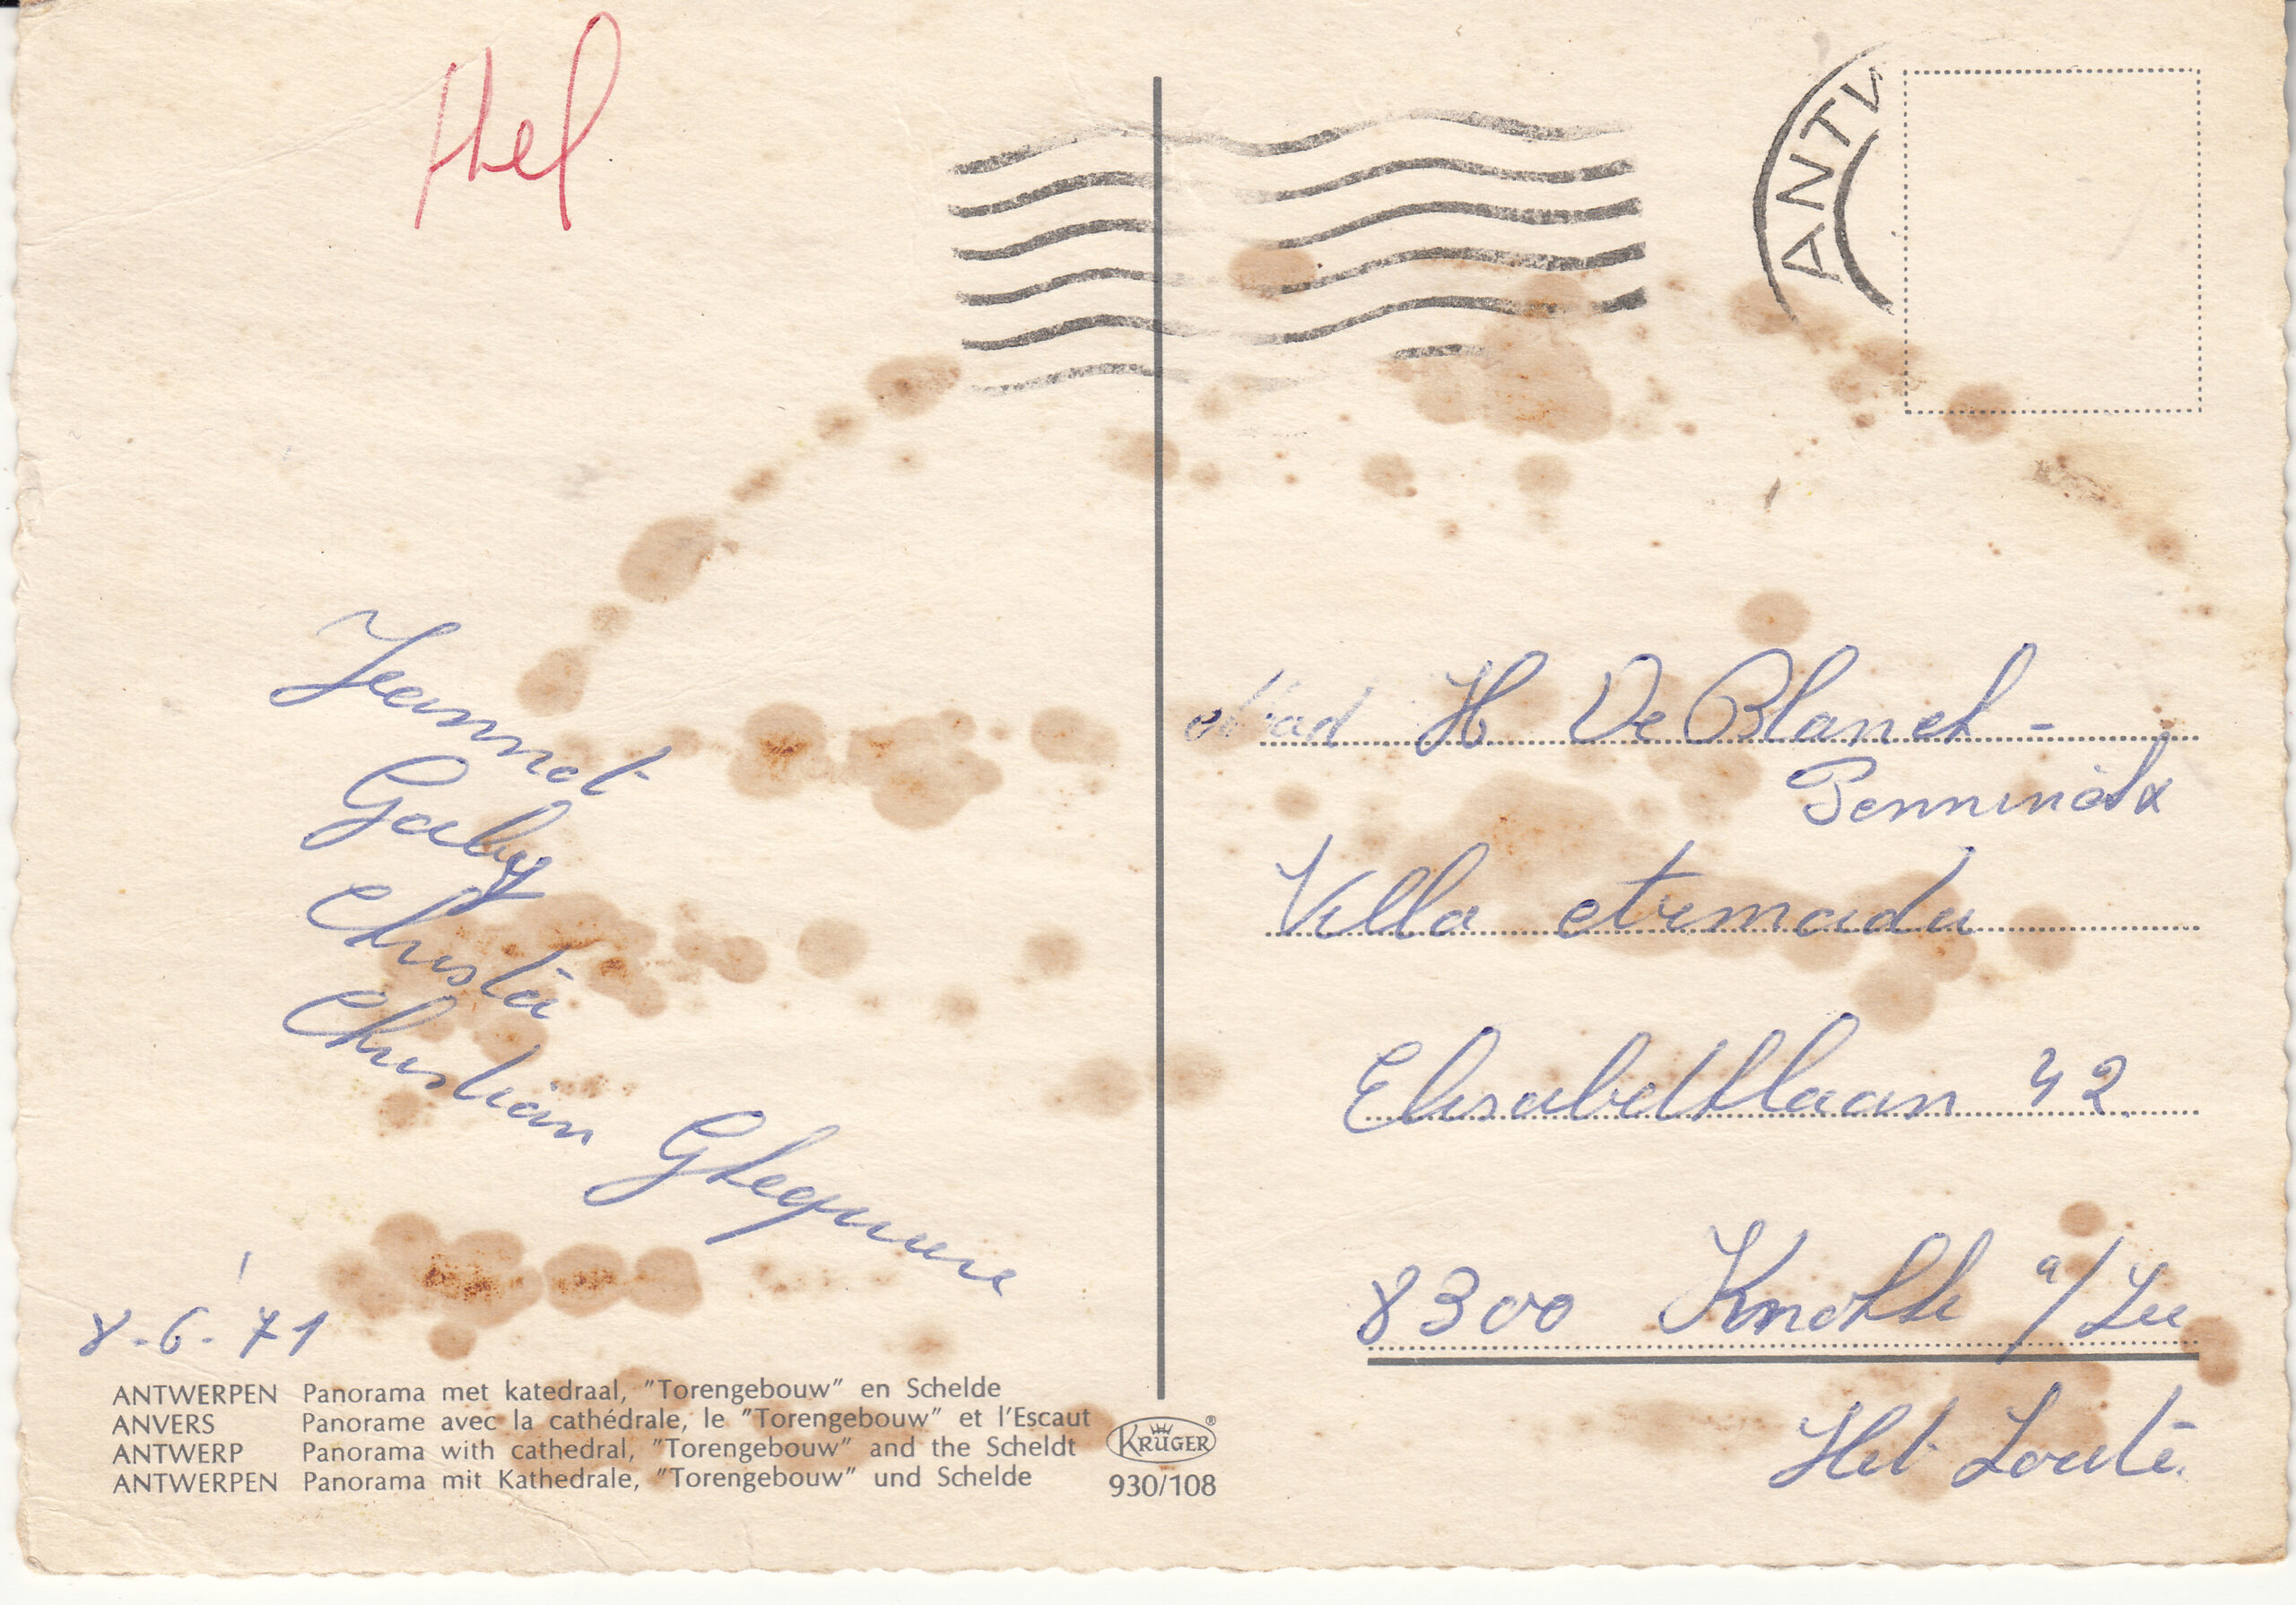 ANTW
Jeannot
Gaby
Christa
Christian
8-6-'71
Mad H De Blanck-
Villa
Elisabethlaan 42
8300 Knokke a/Zee
Het Zoute.
ANTWERPEN Panorama met katedraal, "Torengebouw" en Schelde
ANVERS Panorame avec la cathédrale, le "Torengebouw" et l'Escaut
ANTWERP Panorama with cathedral, "Torengebouw" and the Scheldt
ANTWERPEN Panorama mit Kathedrale, "Torengebouw" und Schelde
KRÜGER®
930/108